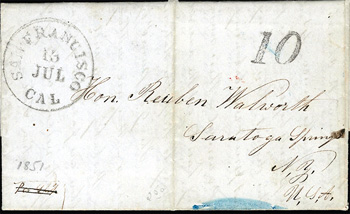 SAN FRANCISCO
15
JUL
CAL
10
Hon. Reuben Walworth
Saratoga Springs
N.Y.
U.S.A.
1851